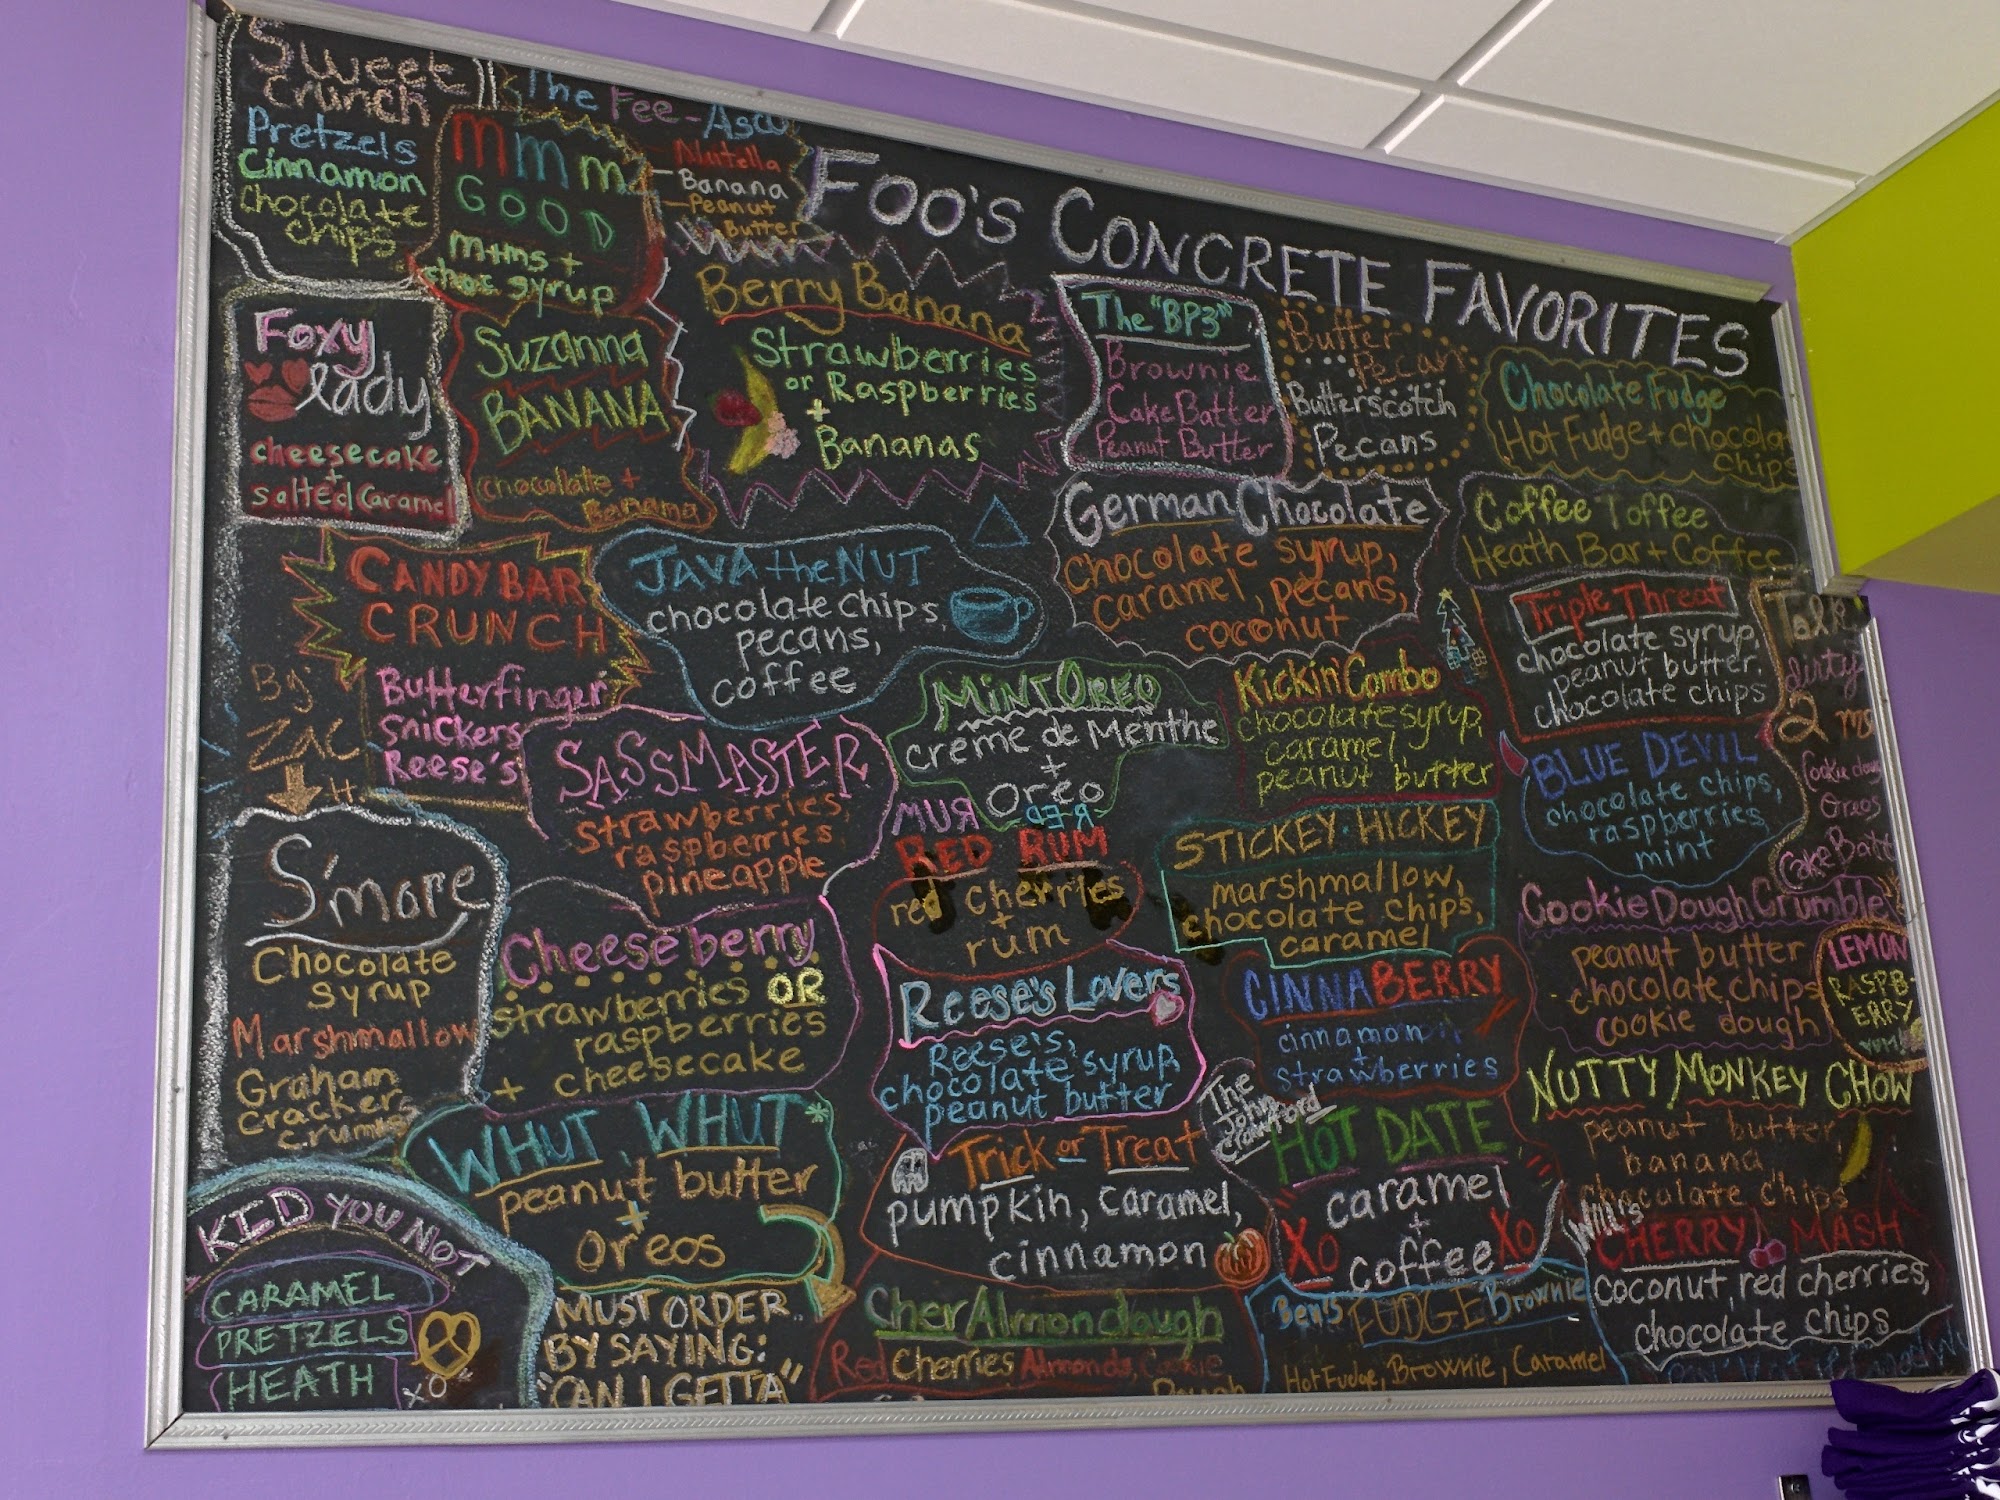 FOO'S CONCRETE FAVORITES
Sweet
Crunch
Pretzels
Cinnamon
Chocolate
Chips
The Fee-Asco
Nutella
Banana
Peanut
Butter
mmm
GOOD
m+ms +
choc syrup
Foxy
lady
cheesecake
+
salted Caramel
Suzanna
BANANA
chocolate +
Banana
Berry Banana
Strawberries
or Raspberries
+
Bananas
The "BP3"
Brownie
Cake Batter
Peanut Butter
Butter
Pecan
Butterscotch
Pecans
Chocolate Fudge
Hot Fudge + chocolate
chips
CANDY BAR
CRUNCH
Butterfinger
Snickers
Reese's
JAVA the NUT
chocolate chips,
pecans,
coffee
German Chocolate
Chocolate syrup,
caramel, pecans,
coconut
Coffee Toffee
Heath Bar + Coffee
Triple Threat
chocolate syrup,
peanut butter,
chocolate chips
Talk
dirty
2 me
Cookie dough
Oreos
Cake Batt
By
ZAC
S'more
Chocolate
syrup
Marshmallow
Graham
crackers
crumbs
SASSMASTER
strawberries,
raspberries,
pineapple
MINT OREO
creme de Menthe
+
Oreo
Kickin' Combo
chocolate syrup,
caramel,
peanut butter
BLUE DEVIL
chocolate chips,
raspberries,
mint
MUR
RED
RED RUM
red cherries
+
rum
STICKEY-HICKEY
marshmallow,
chocolate chips,
caramel
Cookie Dough Crumble
peanut butter
chocolate chips
cookie dough
LEMON
RASPB-
ERRY
YUM!
Cheeseberry
strawberries OR
raspberries
+ cheesecake
Reese's Lovers
Reese's,
chocolate syrup,
peanut butter
CINNABERRY
cinnamon
+
strawberries
NUTTY MONKEY CHOW
peanut butter,
banana,
chocolate chips
WHUT WHUT*
peanut butter
+
Oreos
MUST ORDER
BY SAYING:
"CAN I GETTA"
Trick or Treat
pumpkin, caramel,
cinnamon
The
John
Crawford
HOT DATE
caramel
+
coffee
XO
XO
Will's
CHERRY MASH
coconut, red cherries,
chocolate chips
KID YOU NOT
CARAMEL
PRETZELS
HEATH
XO
CherAlmondough
Red Cherries Almonds, Cookie
Dough
Ben's FUDGE Brownie
Hot Fudge, Brownie, Caramel